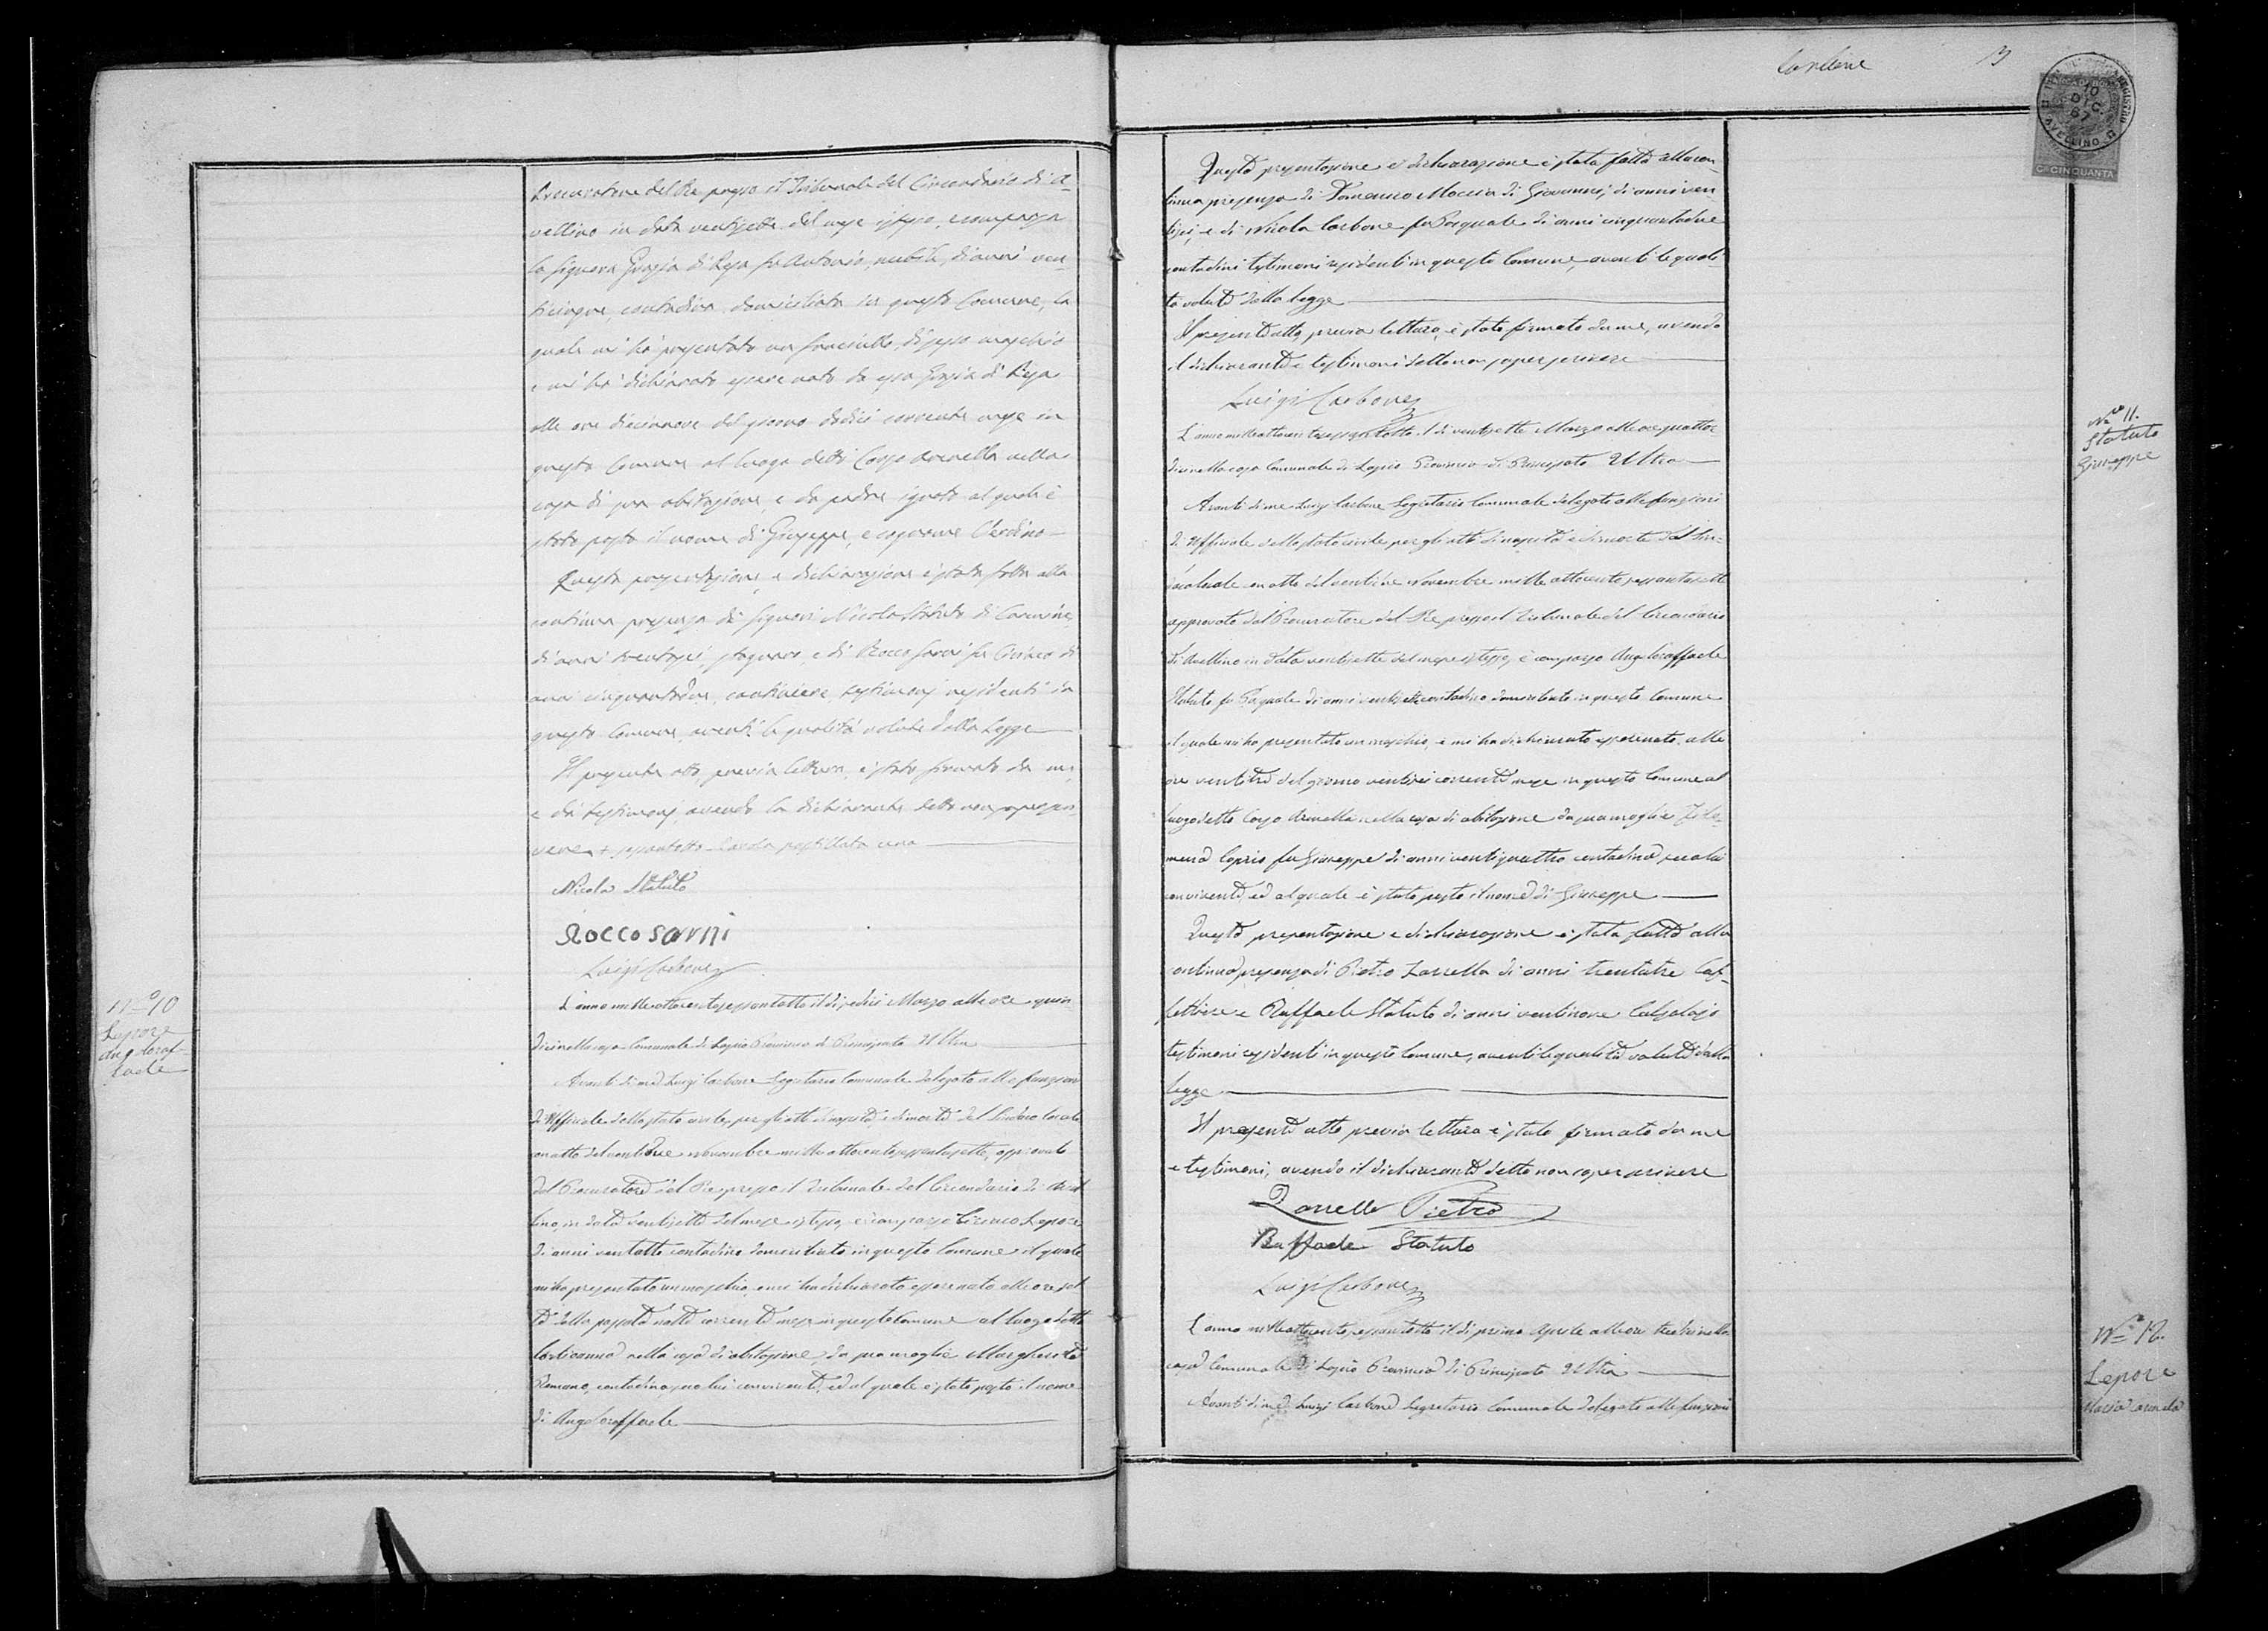 Procuratore del Re presso il Tribunale del Circondario di A-
vellino in data ventisette del mese istesso, è comparsa
la signora Grazia di Resa fu Antonio, nubile, di anni ven-
ticinque, contadina domiciliata in questo Comune, la
quale mi ha presentato un fanciullo di sesso maschio
e mi ha dichiarato essere nato da essa Grazia di Resa
alle ore diecinove del giorno dodici corrente mese in
questo Comune al luogo detto Corso Avenella nella
casa di sua abitazione, e da padre ignoto al quale è
stato posto il nome di Giuseppe, e cognome
Questa presentazione e dichiarazione è stata fatta alla
continua presenza di signori Nicola Statuto di Carmine
di anni trentasei, e di Rocco Sarni fu Ciriaco di
anni cinquantadue, cantiniere, testimonj residenti in
questo Comune, aventi le qualità volute dalla Legge
Il presente atto, previa lettura, è stato firmato da me,
e da testimonj, avendo la dichiarante detto non saper scri-
vere + sessantotto postillata una
Nicola Statuto
Rocco Sarni
Luigi Carbone
Nº 10
Lepore
Angeloraf-
faele
L'anno milleottocentosessantotto il dì sedici Marzo alle ore quin-
dici nella casa Comunale di Lapio Provincia di Principato Ultra
Avanti di me Luigi Carbone Segretario Comunale delegato alle funzioni
di Uffiziale dello stato civile per gli atti di nascita, e di morte dal Sindaco locale
con atto del ventidue Novembre milleottocentosessantasette, approvato
dal Procuratore del Re presso il Tribunale del Circondario di Avel
lino in data ventisette del mese istesso, è comparso Ciriaco Lepore
di anni ventotto contadino domiciliato in questo Comune il quale
mi ha presentato un maschio, e mi ha dichiarato essere nato alle ore set
te della passata notte corrente mese in questo Comune al luogo detto
nella casa di abitazione, da sua moglie Margherita
Romano, contadina, seco lui convivente, ed al quale è stato posto il nome
di Angeloraffaele
Carbone 3
10 DIC 67
AVELLINO
Cmi CINQUANTA
Questa presentazione e dichiarazione è stata fatta alla con-
tinua presenza di Domenico Moccia di Giovanni, di anni ven
tisei, e di Nicola Carbone fu Pasquale di anni cinquantadue
contadini testimoni residenti in questo Comune, aventi le quali-
tà volute dalla legge
Il presente atto, previa lettura, è stato firmato da me, avendo
il dichiarante e testimoni detto non saper scrivere
Luigi Carbone
Nº 11.
Statuto
Giuseppe
L'anno milleottocentosessantotto il dì ventisette Marzo alle ore quattor
dici nella casa Comunale di Lapio Provincia di Principato Ultra
Avanti di me Luigi Carbone Segretario Comunale delegato alle funzioni
di Uffiziale dello stato civile per gli atti di nascita e di morte dal Sin-
daco locale con atto del ventidue Novembre milleottocentosessantasette
approvato dal Procuratore del Re presso il Tribunale del Circondario
di Avellino in data ventisette del mese istesso, è comparso Angeloraffaele
Statuto fu Pasquale di anni ventisette contadino domiciliato in questo Comune
il quale mi ha presentato un maschio, e mi ha dichiarato essere nato alle
ore ventitre del giorno ventisei corrente mese in questo Comune al
luogo detto Corso Avenella nella casa di abitazione da sua moglie Filo-
mena Caprio fu Giuseppe di anni ventiquattro contadina seco lui
convivente, ed al quale è stato posto il nome di Giuseppe
Questa presentazione e dichiarazione è stata fatta alla
continua presenza di Pietro Zarrella di anni trentatre Caf-
fettiere e Raffaele Statuto di anni ventinove Calzolajo
testimoni residenti in questo Comune, aventi le qualità volute dalla
legge
Il presente atto previa lettura è stato firmato da me
e testimoni, avendo il dichiarante detto non saper scrivere
Zarrella Pietro
Raffaele Statuto
Luigi Carbone
Nº 12.
Lepore
L'anno milleottocentosessantotto il dì primo Aprile alle ore tredici nella
casa Comunale di Lapio Provincia di Principato Ultra
Avanti di me Luigi Carbone Segretario Comunale delegato alle funzioni